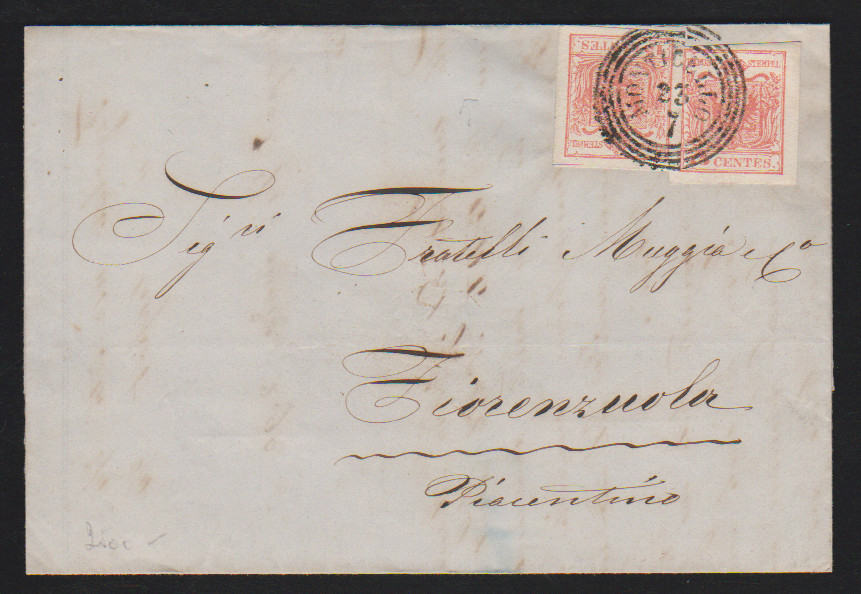 CENTES.
STEMPEL
STEMPEL
CENTES.
23
7
Sig.ri Fratelli Muggia e Co
Fiorenzuola
Piacentino